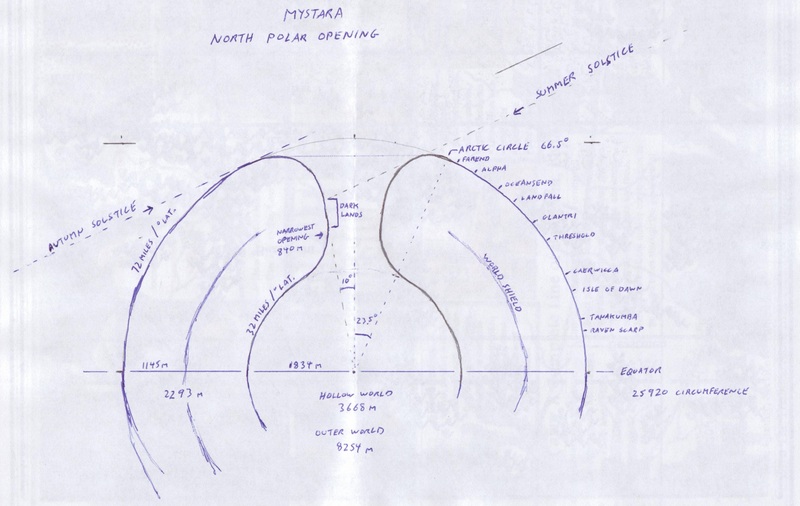 MYSTARA
NORTH POLAR OPENING
SUMMER SOLSTICE
ARCTIC CIRCLE 66.5°
FAREND
ALPHA
OCEANSEND
LANDFALL
GLANTRI
THRESHOLD
CAERWICCA
ISLE OF DAWN
TANAKUMBA
RAVEN SCARP
AUTUMN SOLSTICE
72 MILES / °LAT.
DARK
LANDS
NARROWEST
OPENING
840 M
32 MILES / °LAT.
10°
23.5°
WORLD SHIELD
1145 M
1834 M
2293 M
EQUATOR
25920 CIRCUMFERENCE
HOLLOW WORLD
3668 M
OUTER WORLD
8254 M